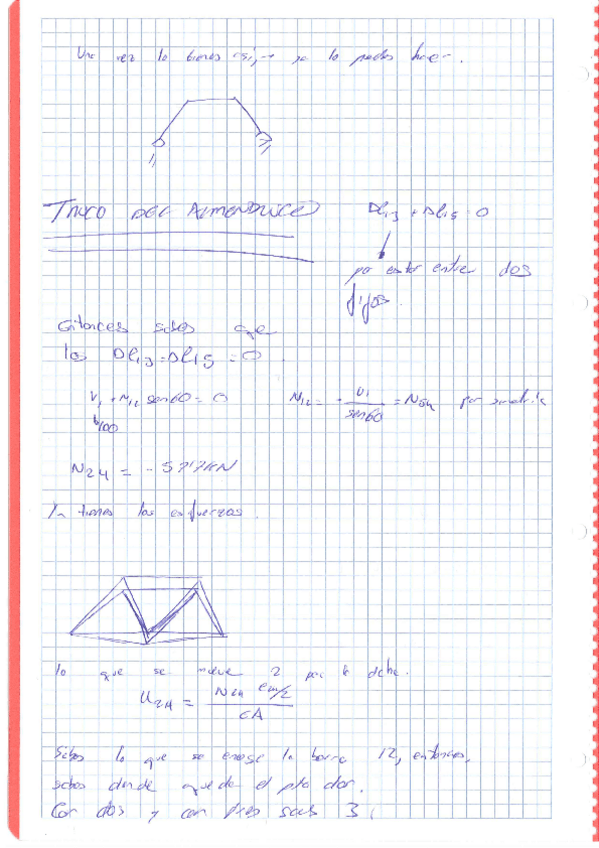 Una vez lo tienes así, → ya lo puedes hacer.
TRUCO DEL ALMENDRUCO
Δl₁₃ + Δl₁₅ = 0
por estar entre dos
fijos.
Entonces sabes que
los Δl₁₃ = Δl₁₅ = 0.
V₁ + N₁₂ sen60 = 0
N₁₂ = - V₁ / sen60 = N₅₄ por simetría
N₂₄ = -577 KN
Ya tienes los esfuerzos.
lo que se mueve 2 por la dcha.
U₂₄ = N₂₄ / EA
Sabes lo que se encoge la barra 12, entonces,
sabes donde queda el pto dos.
Con dos y con tres sacas 3.